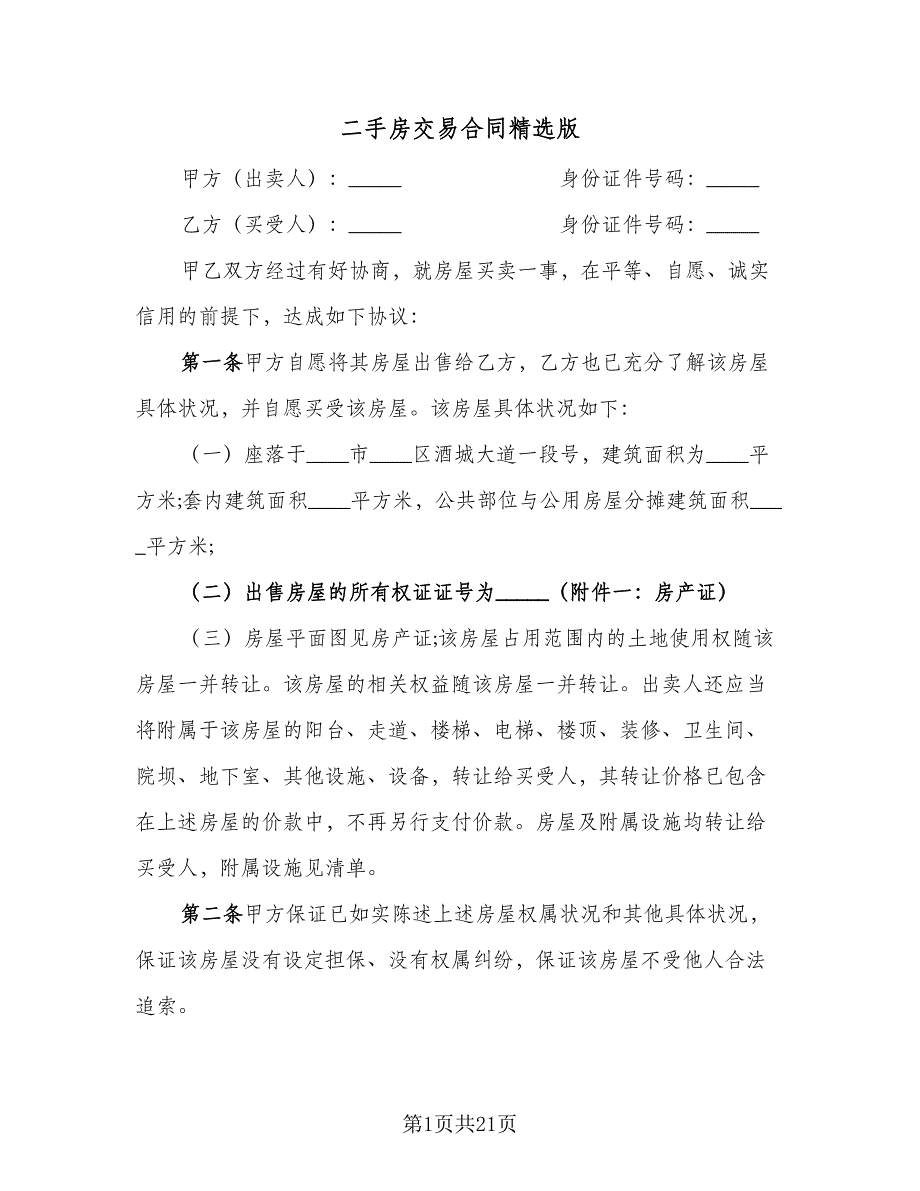 二手房交易合同精选版
甲方（出卖人）：_____ 身份证件号码：_____
乙方（买受人）：_____ 身份证件号码：_____
甲乙双方经过有好协商，就房屋买卖一事，在平等、自愿、诚实
信用的前提下，达成如下协议：
第一条甲方自愿将其房屋出售给乙方，乙方也已充分了解该房屋
具体状况，并自愿买受该房屋。该房屋具体状况如下：
（一）座落于____市____区酒城大道一段号，建筑面积为____平
方米;套内建筑面积____平方米，公共部位与公用房屋分摊建筑面积___
_平方米;
（二）出售房屋的所有权证证号为_____（附件一：房产证）
（三）房屋平面图见房产证;该房屋占用范围内的土地使用权随该
房屋一并转让。该房屋的相关权益随该房屋一并转让。出卖人还应当
将附属于该房屋的阳台、走道、楼梯、电梯、楼顶、装修、卫生间、
院坝、地下室、其他设施、设备，转让给买受人，其转让价格已包含
在上述房屋的价款中，不再另行支付价款。房屋及附属设施均转让给
买受人，附属设施见清单。
第二条甲方保证已如实陈述上述房屋权属状况和其他具体状况，
保证该房屋没有设定担保、没有权属纠纷，保证该房屋不受他人合法
追索。
第1页共21页